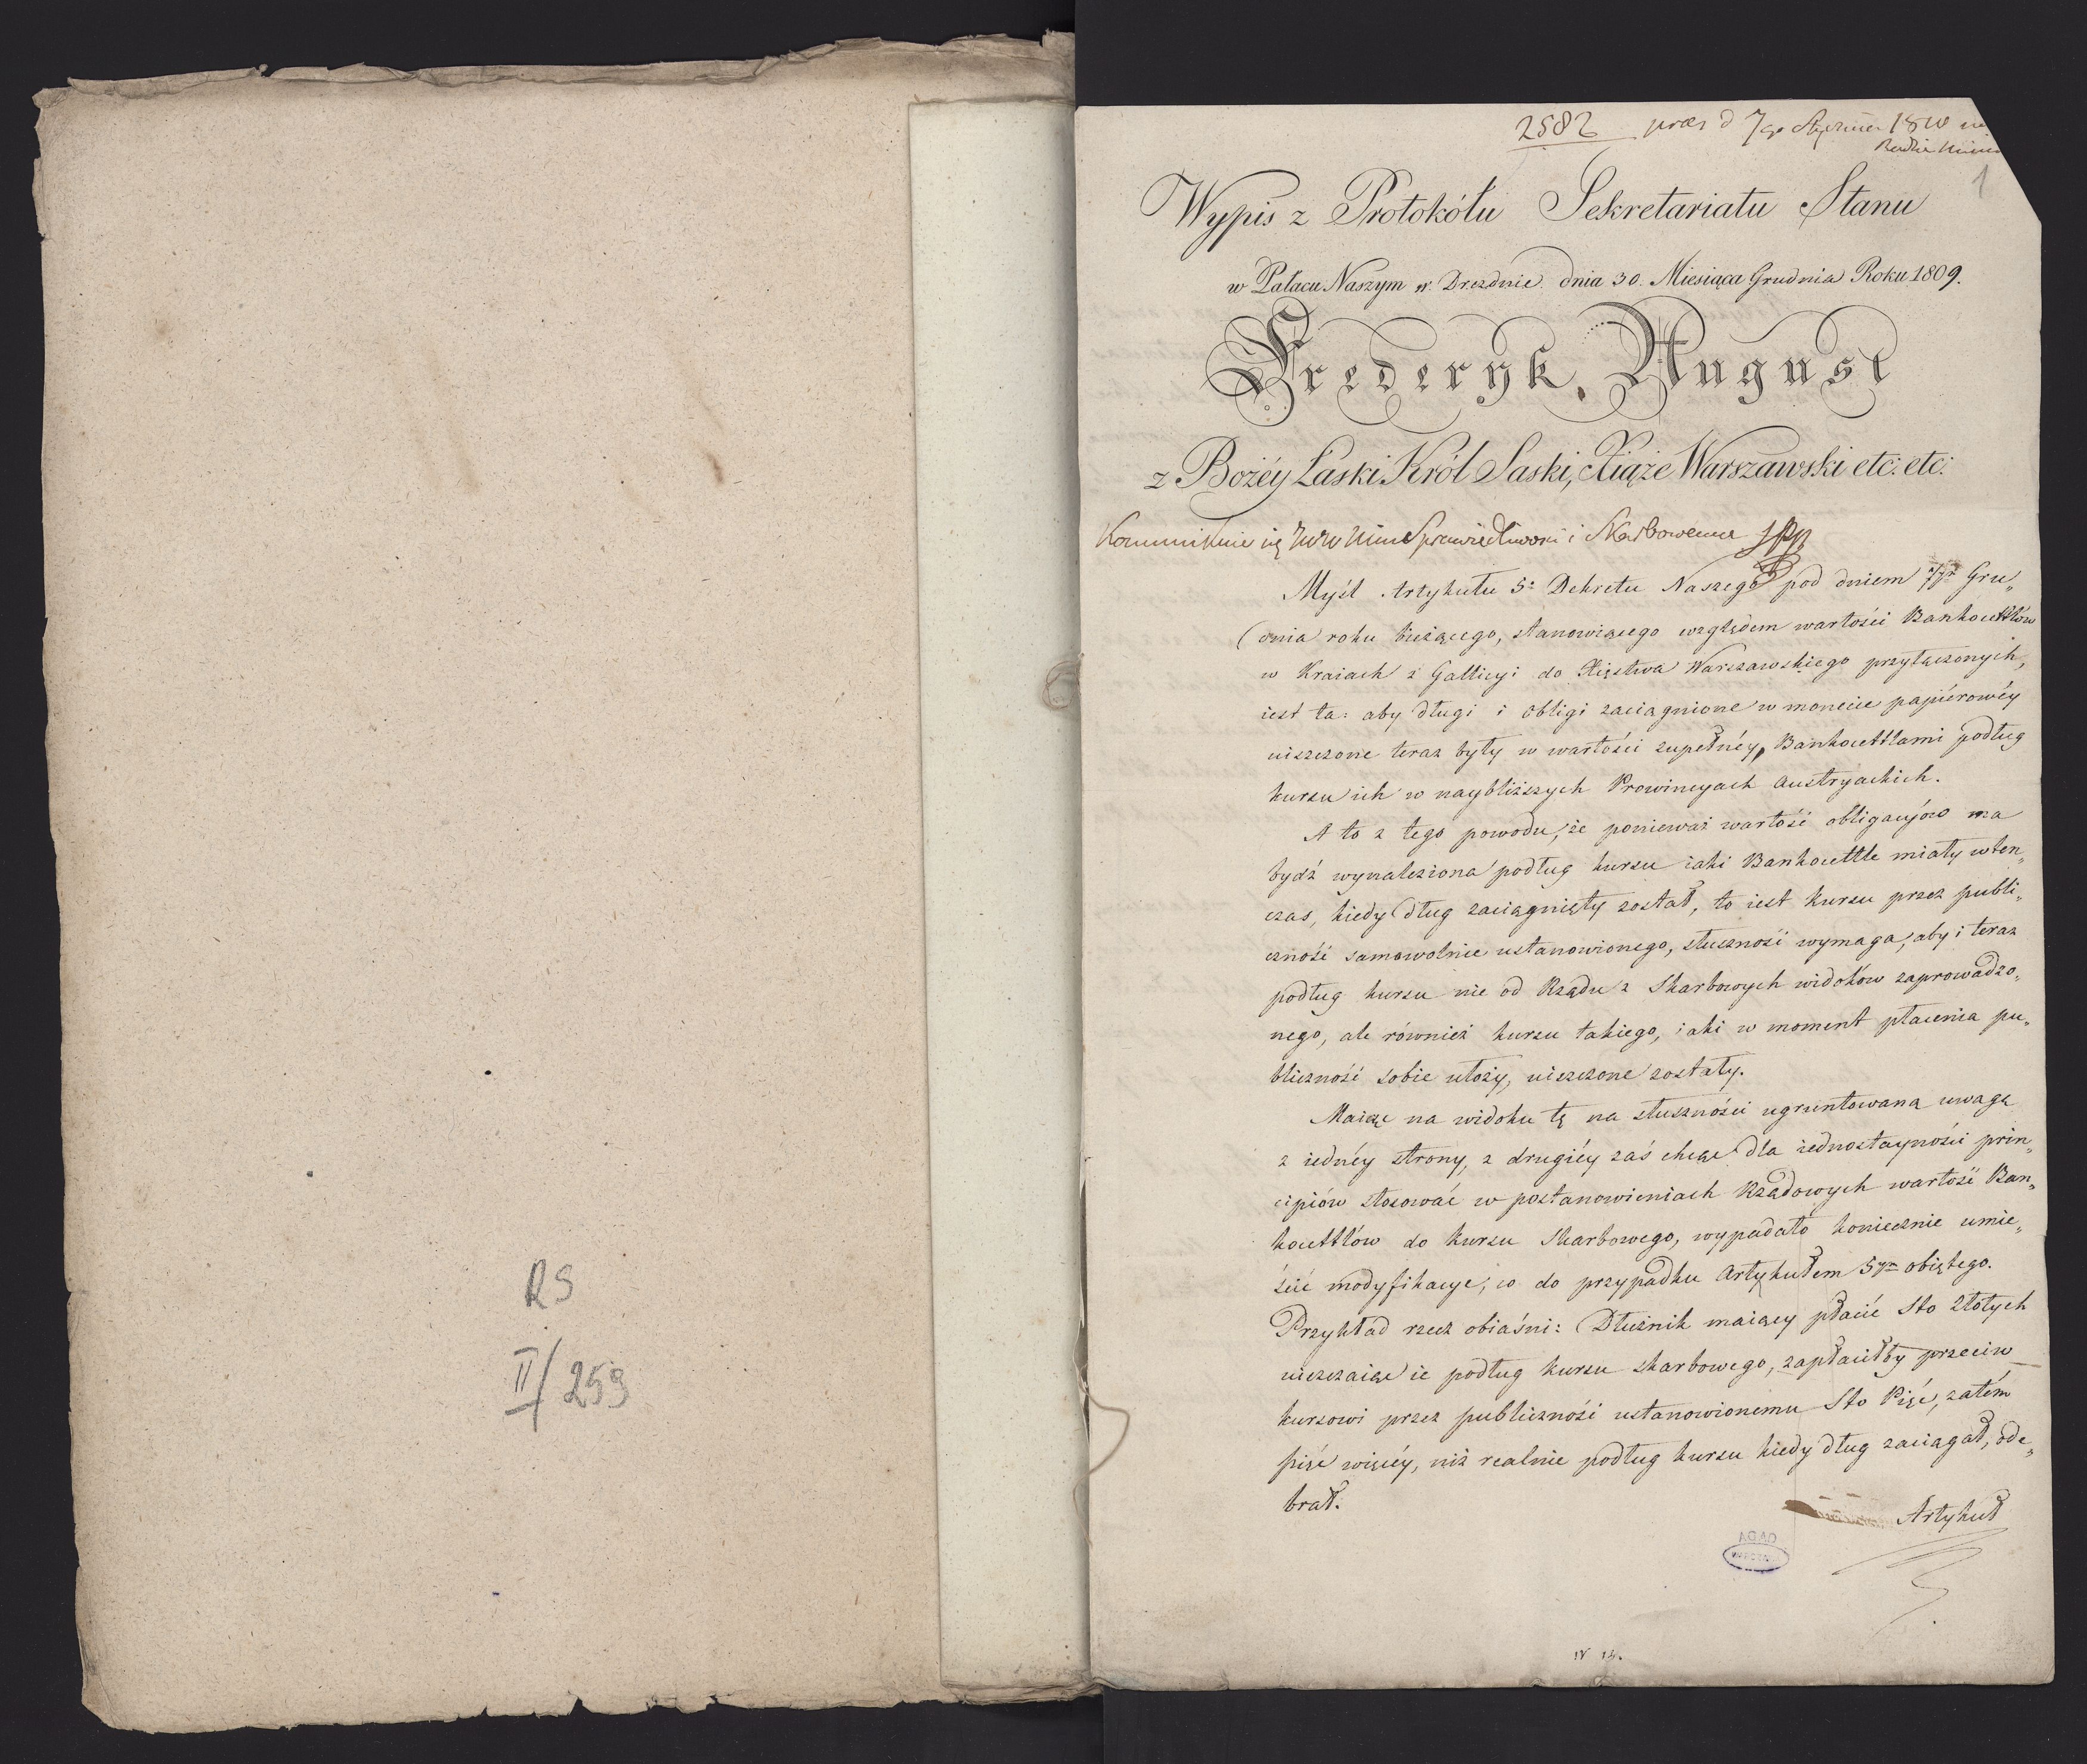 RS
II/259
2582 praes d 7go Stycznia 1810
1
Wypis z Protokółu Sekretariatu Stanu
w Pałacu Naszym w Dreznie dnia 30. Miesiąca Grudnia Roku 1809.
Frederyk August
z Bożéy Łaski Król Saski, Xiąże Warszawski etc: etc:
Kommunikuie się Sprawiedliwości i Skarbowemu
Myśl Artykułu 5o Dekretu Naszego pod dniem 7ym Gru„
dnia roku bieżącego, stanowiącego względem wartości Bankocettlów
w Kraiach z Gallicyi do Xięstwa Warszawskiego przyłączonych,
iest ta: aby długi i obligi zaciągnione w monecie papiérowéy
uiszczone teraz były w wartości zupełnéy, Bankocettlami podług
kursu ich w naybliższych Prowincyach Austryackich.
A to z tego powodu, że ponieważ wartość obligacyów ma
bydź wynaleziona podług kursu iaki Bankocettle miały wten„
czas, kiedy dług zaciągnięty został, to iest kursu przez publi„
czność samowolnie ustanowionego, słuszność wymaga, aby i teraz
podług kursu nie od Rządu z Skarbowych widoków zaprowadzo„
nego, ale również kursu takiego, iaki w moment płacenia pu„
bliczność sobie ułoży, uiszczone zostały.
Maiąc na widoku tę na słuszności ugruntowaną uwagę
z iednéy strony, z drugiéy zaś chcąc dla iednostayności prin„
cipiów stosować w postanowieniach Rządowych wartość Ban„
kocettlów do kursu Skarbowego, wypadało koniecznie umie„
ścić modyfikacye, co do przypadku Artykułem 5ym obiętego.
Przykład rzecz obiaśni: Dłużnik maiący płacić Sto Złotych
uiszczaiąc ie podług kursu skarbowego, zapłaciłby przeciw
kursowi przez publiczność ustanowionemu Sto Pięć, zatém
pięć więcéy, niż realnie podług kursu kiedy dług zaciągał, ode„
brał.
Artykuł
AGAD